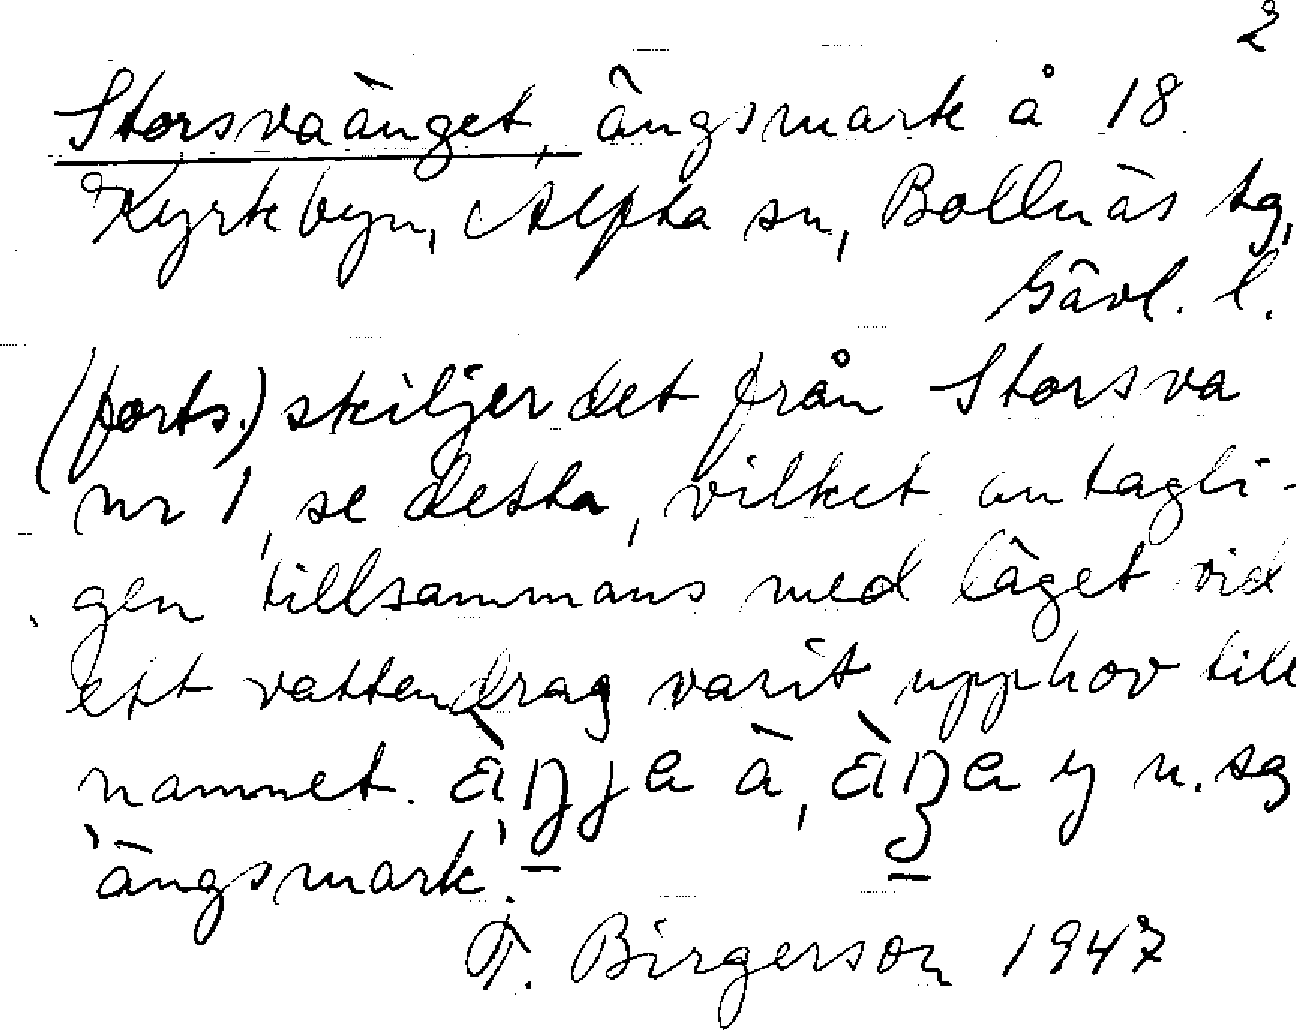 2
Storsvaänget, ängsmark å 18
Kyrkbyn, Alfta sn, Bollnäs tg,
Gävl. l.
(forts.) skiljer det från Storsva
nr 1, se detta, vilket antagli-
gen tillsammans med läget vid
ett vattendrag varit upphov till
namnet. ä̀ŋje ä, y n. sg
'ängsmark'.
F. Birgerson 1947